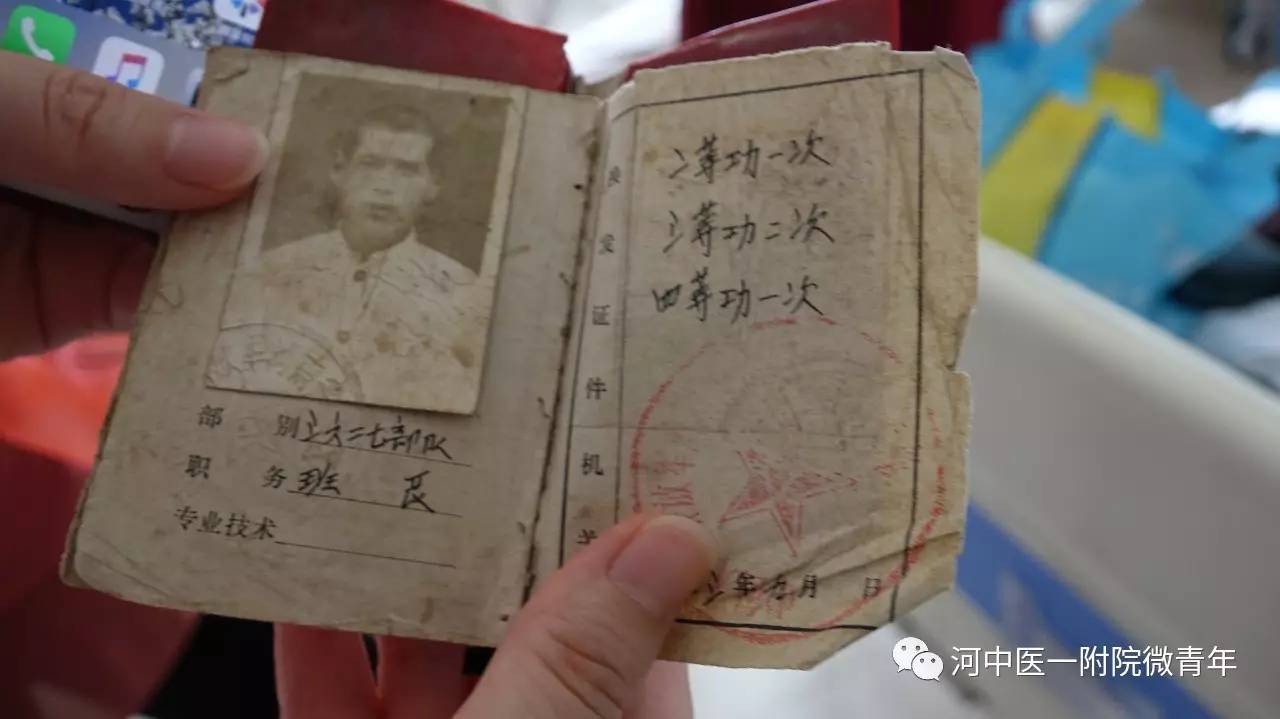 等功一次
三等功二次
四等功一次
换发证件机
部 别 三六二七部队
职 务 班 长
专业技术
年 月 日
河中医一附院微青年